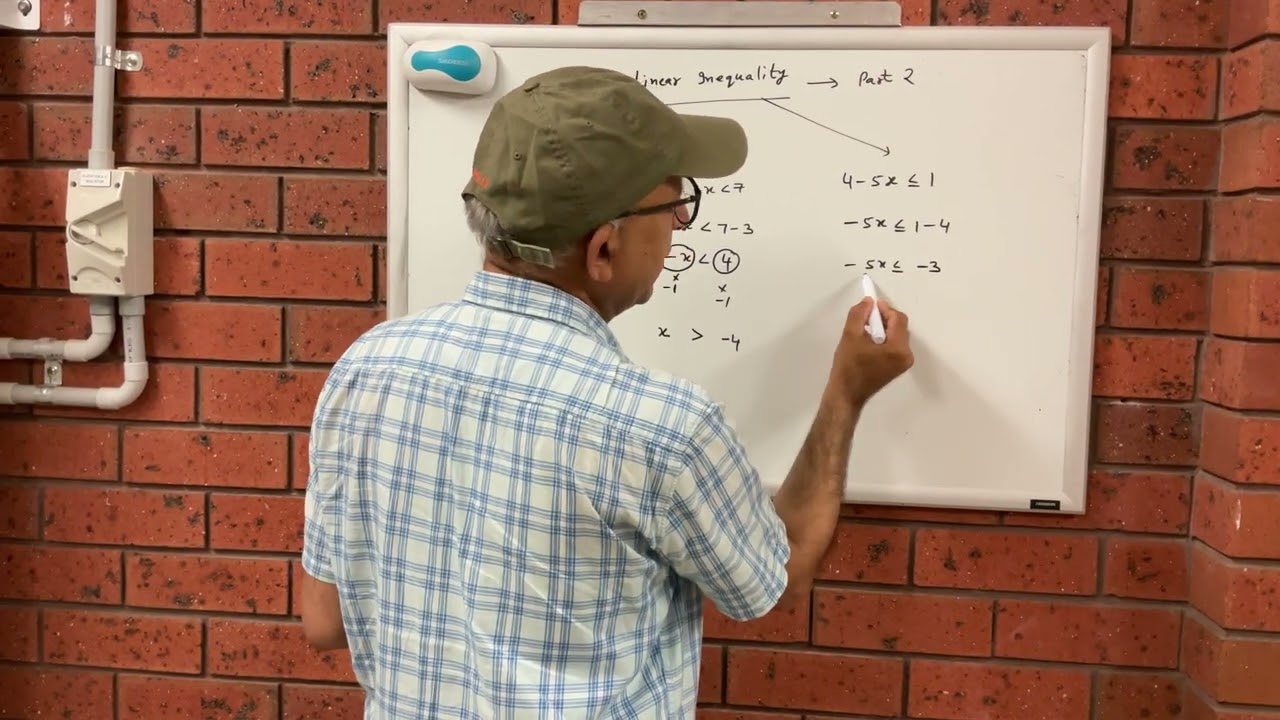 Linear Inequality → Part 2
x < 7
x < 7 - 3
- x < 4
x x
-1 -1
x > -4
4 - 5x ≤ 1
- 5x ≤ 1 - 4
- 5x ≤ -3